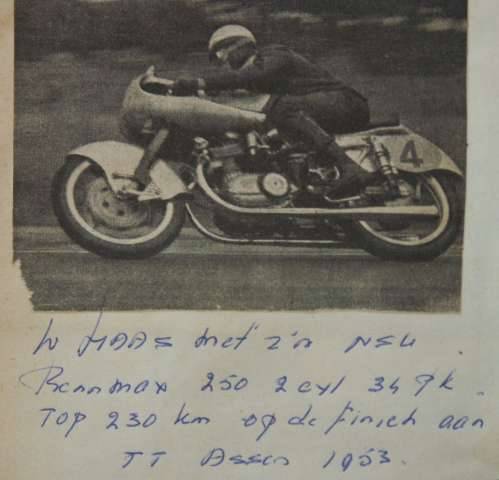 4
W HAAS met z'n NSU
Rennmax 250 2 cyl 34 pk
Top 230 km op de finich aan
TT Assen 1953.